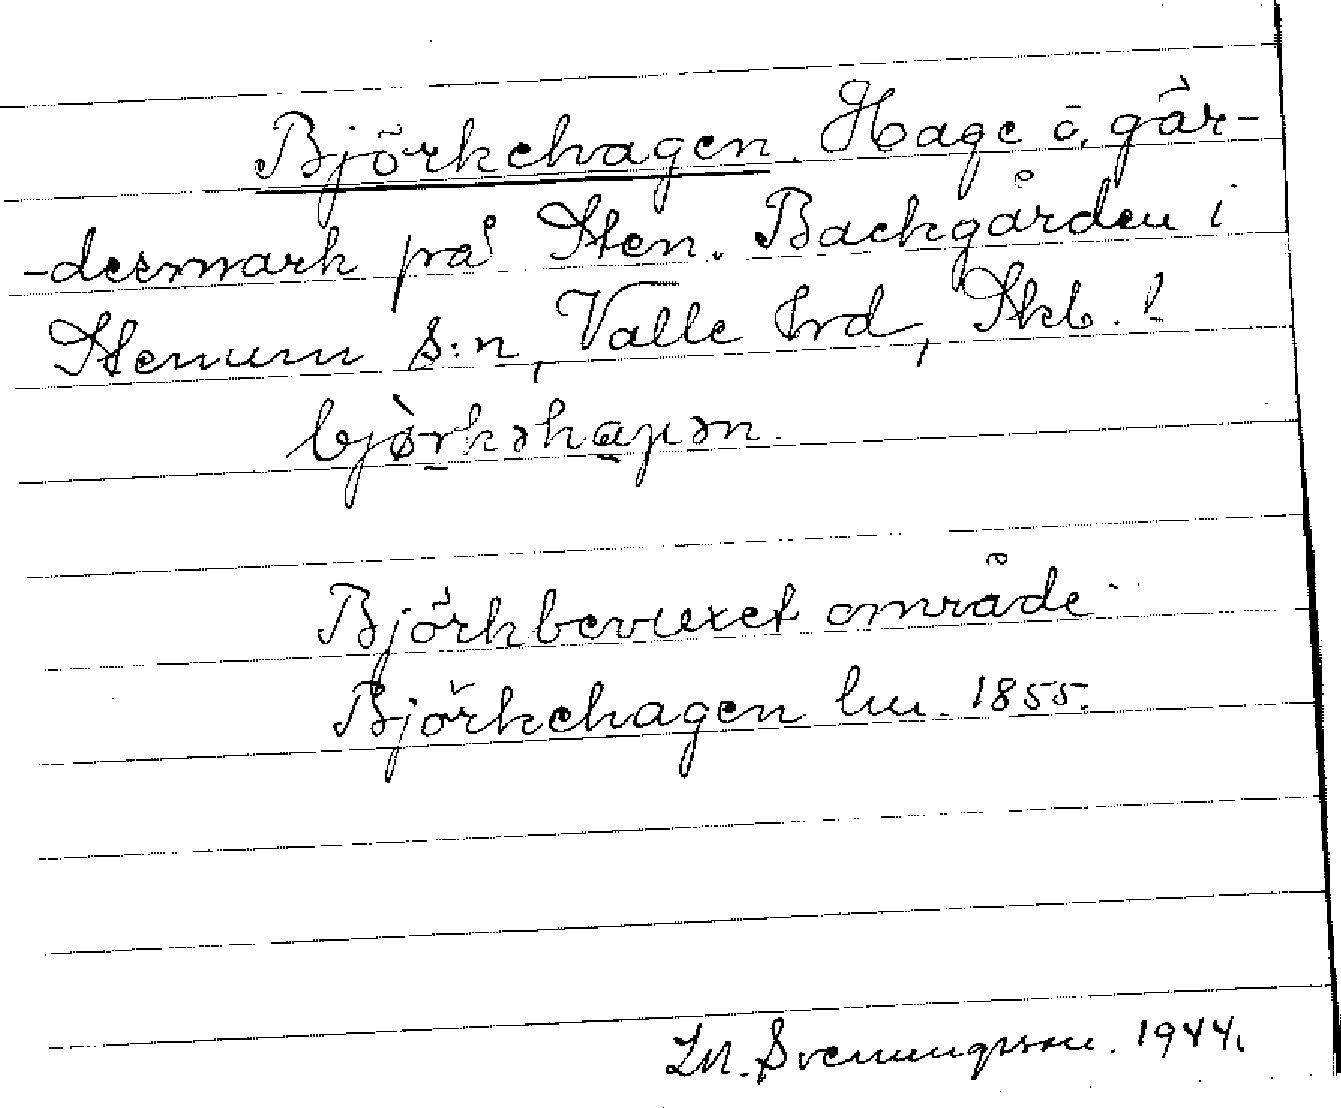 Björkehagen. Hage o. gär-
-desmark på Hen. Backgården i
Stenum s:n, Valle hrd, Skb. l.
bjòrkəhaɡən.
Björkbevuxet område.
Björkehagen lm. 1855.
Ln. Svenungsson. 1944.